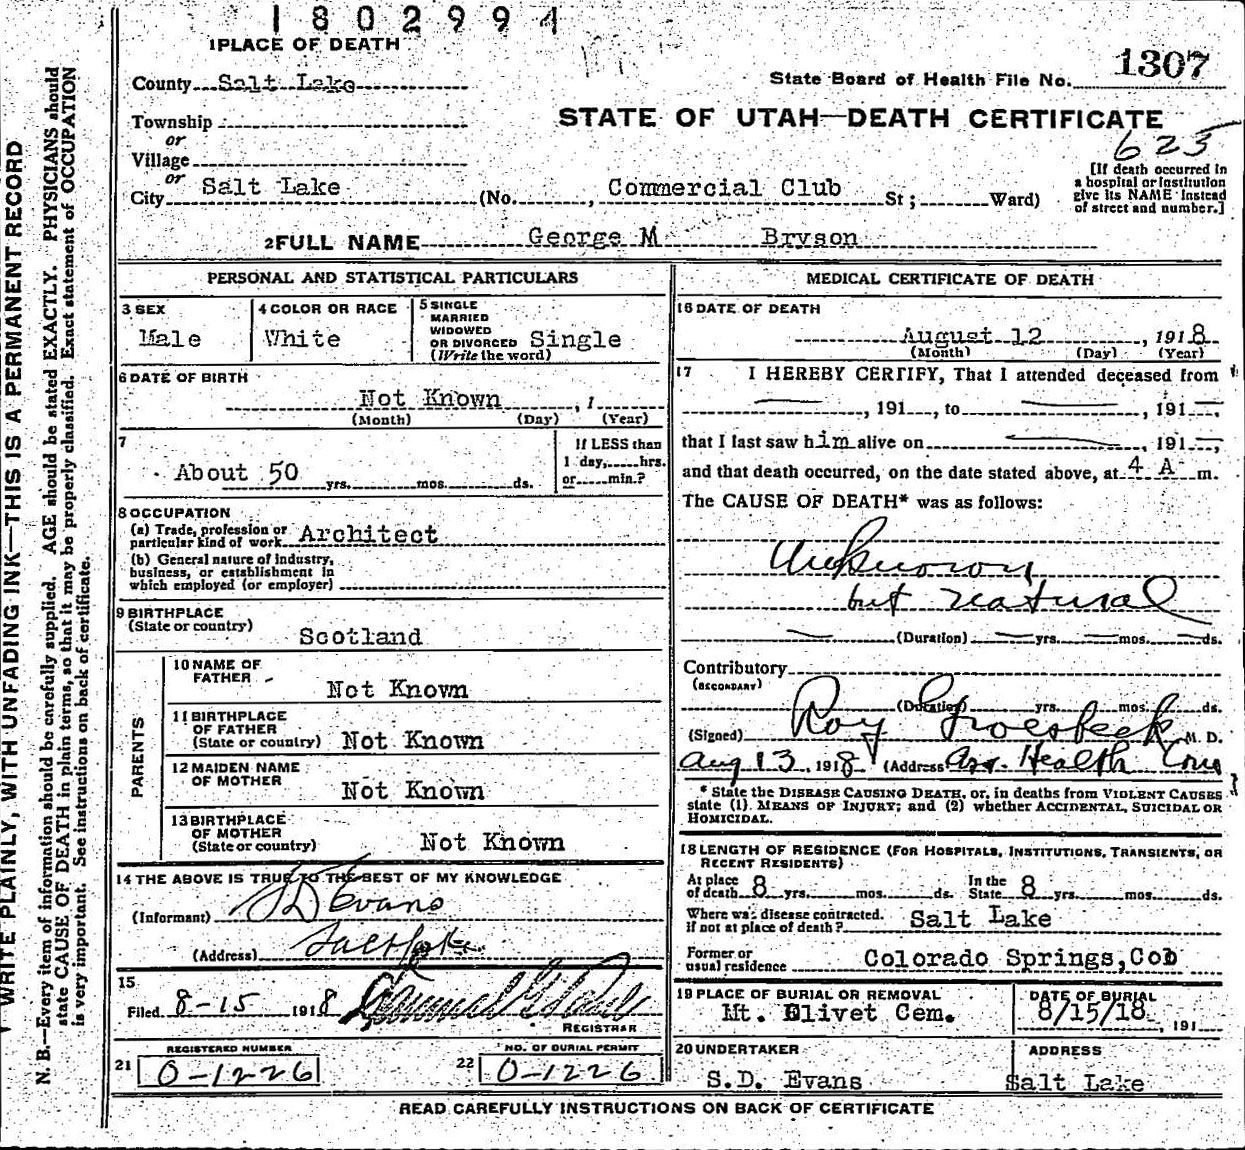 1802994
1 PLACE OF DEATH
County Salt Lake
State Board of Health File No. 1307
Township
or
Village
or
City Salt Lake (No. , Commercial Club St; Ward)
STATE OF UTAH—DEATH CERTIFICATE
625
[If death occurred in
a hospital or institution
give its NAME instead
of street and number.]
2 FULL NAME George M Bryson
PERSONAL AND STATISTICAL PARTICULARS
3 SEX
Male
4 COLOR OR RACE
White
5 SINGLE
MARRIED
WIDOWED
OR DIVORCED Single
(Write the word)
6 DATE OF BIRTH
Not Known , 1
(Month) (Day) (Year)
7
About 50 yrs. mos. ds.
If LESS than
1 day, hrs.
or min.?
8 OCCUPATION
(a) Trade, profession or
particular kind of work Architect
(b) General nature of industry,
business, or establishment in
which employed (or employer)
9 BIRTHPLACE
(State or country)
Scotland
PARENTS
10 NAME OF
FATHER
Not Known
11 BIRTHPLACE
OF FATHER
(State or country) Not Known
12 MAIDEN NAME
OF MOTHER
Not Known
13 BIRTHPLACE
OF MOTHER
(State or country) Not Known
14 THE ABOVE IS TRUE TO THE BEST OF MY KNOWLEDGE
(Informant) S D Evans
(Address) Salt Lake
15
Filed 8-15 1918
REGISTRAR
REGISTERED NUMBER
21 0-1226
NO. OF BURIAL PERMIT
22 0-1226
MEDICAL CERTIFICATE OF DEATH
16 DATE OF DEATH
August 12 , 1918
(Month) (Day) (Year)
17 I HEREBY CERTIFY, That I attended deceased from
— , 191 , to — , 191—,
that I last saw him alive on — , 191—,
and that death occurred, on the date stated above, at 4 A m.
The CAUSE OF DEATH* was as follows:
Unknown
but natural
— (Duration) — yrs. — mos. — ds.
Contributory
(SECONDARY)
(Duration) yrs. mos. ds.
(Signed) Roy Groesbeck M. D.
Aug 13, 1918 (Address Health
* State the DISEASE CAUSING DEATH, or, in deaths from VIOLENT CAUSES
state (1). MEANS OF INJURY; and (2) whether ACCIDENTAL, SUICIDAL OR
HOMICIDAL.
18 LENGTH OF RESIDENCE (FOR HOSPITALS, INSTITUTIONS, TRANSIENTS, OR
RECENT RESIDENTS)
At place
of death 8 yrs. mos. ds. In the
State 8 yrs. mos. ds.
Where was disease contracted.
if not at place of death? Salt Lake
Former or
usual residence Colorado Springs, Col
19 PLACE OF BURIAL OR REMOVAL
Mt. Olivet Cem.
DATE OF BURIAL
8/15/18 , 191
20 UNDERTAKER
S.D. Evans
ADDRESS
Salt Lake
READ CAREFULLY INSTRUCTIONS ON BACK OF CERTIFICATE
WRITE PLAINLY, WITH UNFADING INK—THIS IS A PERMANENT RECORD
N. B.—Every item of information should be carefully supplied. AGE should be stated EXACTLY. PHYSICIANS should
state CAUSE OF DEATH in plain terms, so that it may be properly classified. Exact statement of OCCUPATION
is very important. See instructions on back of certificate.